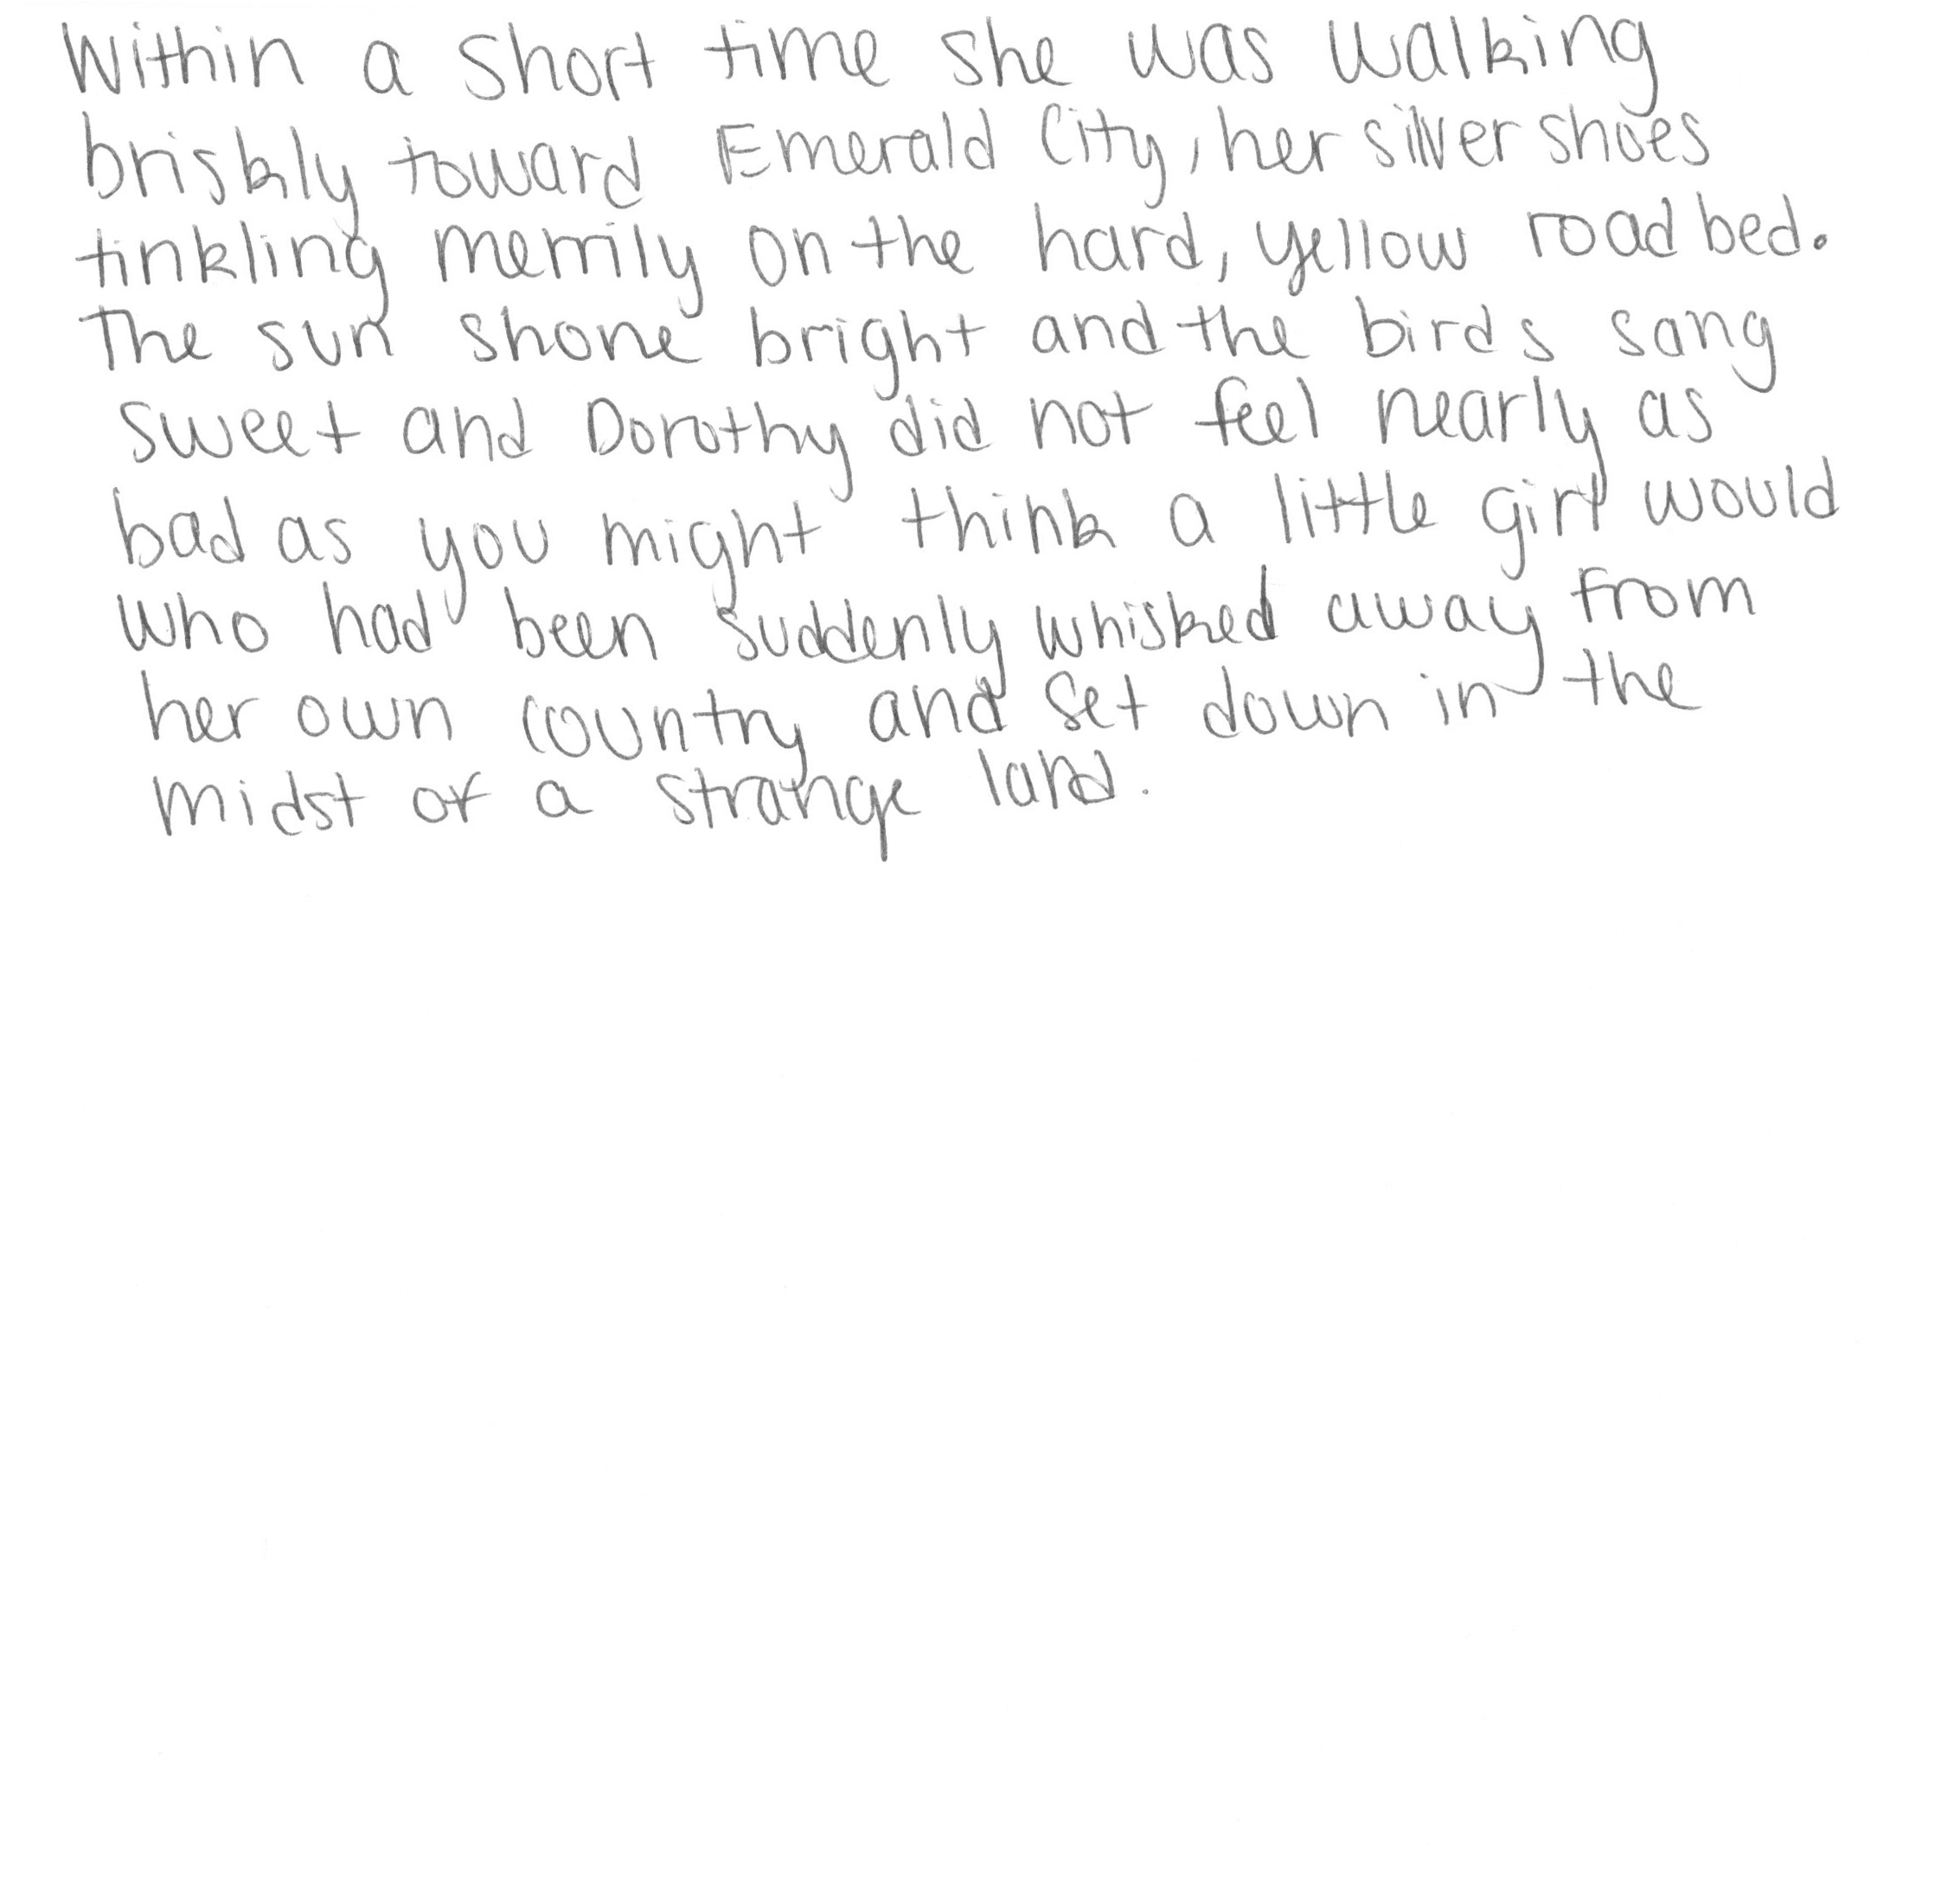 Within a short time she was walking
briskly toward Emerald City, her silver shoes
tinkling merrily on the hard, yellow roadbed.
The sun shone bright and the birds sang
sweet and Dorothy did not feel nearly as
bad as you might think a little girl would
who had been suddenly whisked away from
her own country and set down in the
midst of a strange land.